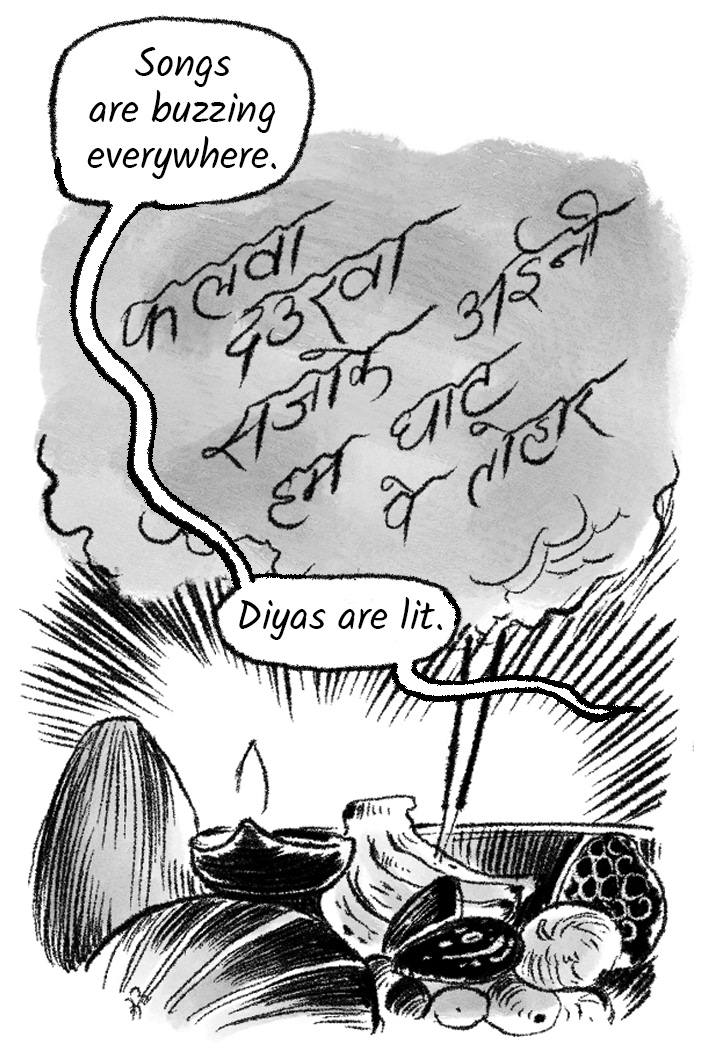 Songs
are buzzing
everywhere.
फलवा
दउरवा
सजाके अईनी
हम घाट
पे तोहार
Diyas are lit.